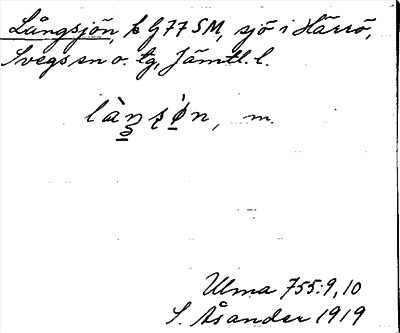 Långsjön, k G77 SM, sjö i Härrö,
Svegs sn o. tg, Jämtl. l.
làŋsø̀n, m.
Ulma 755:9,10
S. Åsander 1919